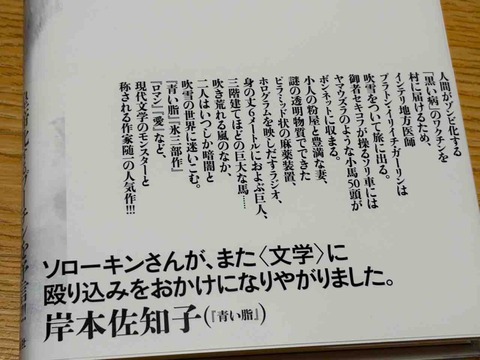 人間がゾンビ化する
「黒い病」のワクチンを
村に届けるため、
インテリ地方医師
プラトン・イリイチ・ガーリンは
吹雪をついて旅に出る。
御者セキコフが操るソリ車には
ヤマウズラのような小馬50頭が
ボンネットに収まる。
小人の粉屋と豊満な妻、
謎の透明物質でできた
ピラミッド状の麻薬装置、
ホログラムを映しだすラジオ、
身の丈6メートルにおよぶ巨人、
三階建てほどの巨大な馬……
吹き荒れる嵐のなか、
二人はいつしか暗闇と
吹雪の世界に迷いこむ。
『青い脂』『氷三部作』
『ロマン』『愛』など、
現代文学のモンスターと
称される作家随一の人気作!!!
ソローキンさんが、また〈文学〉に
殴り込みをおかけになりやがりました。
岸本佐知子(『青い脂』)